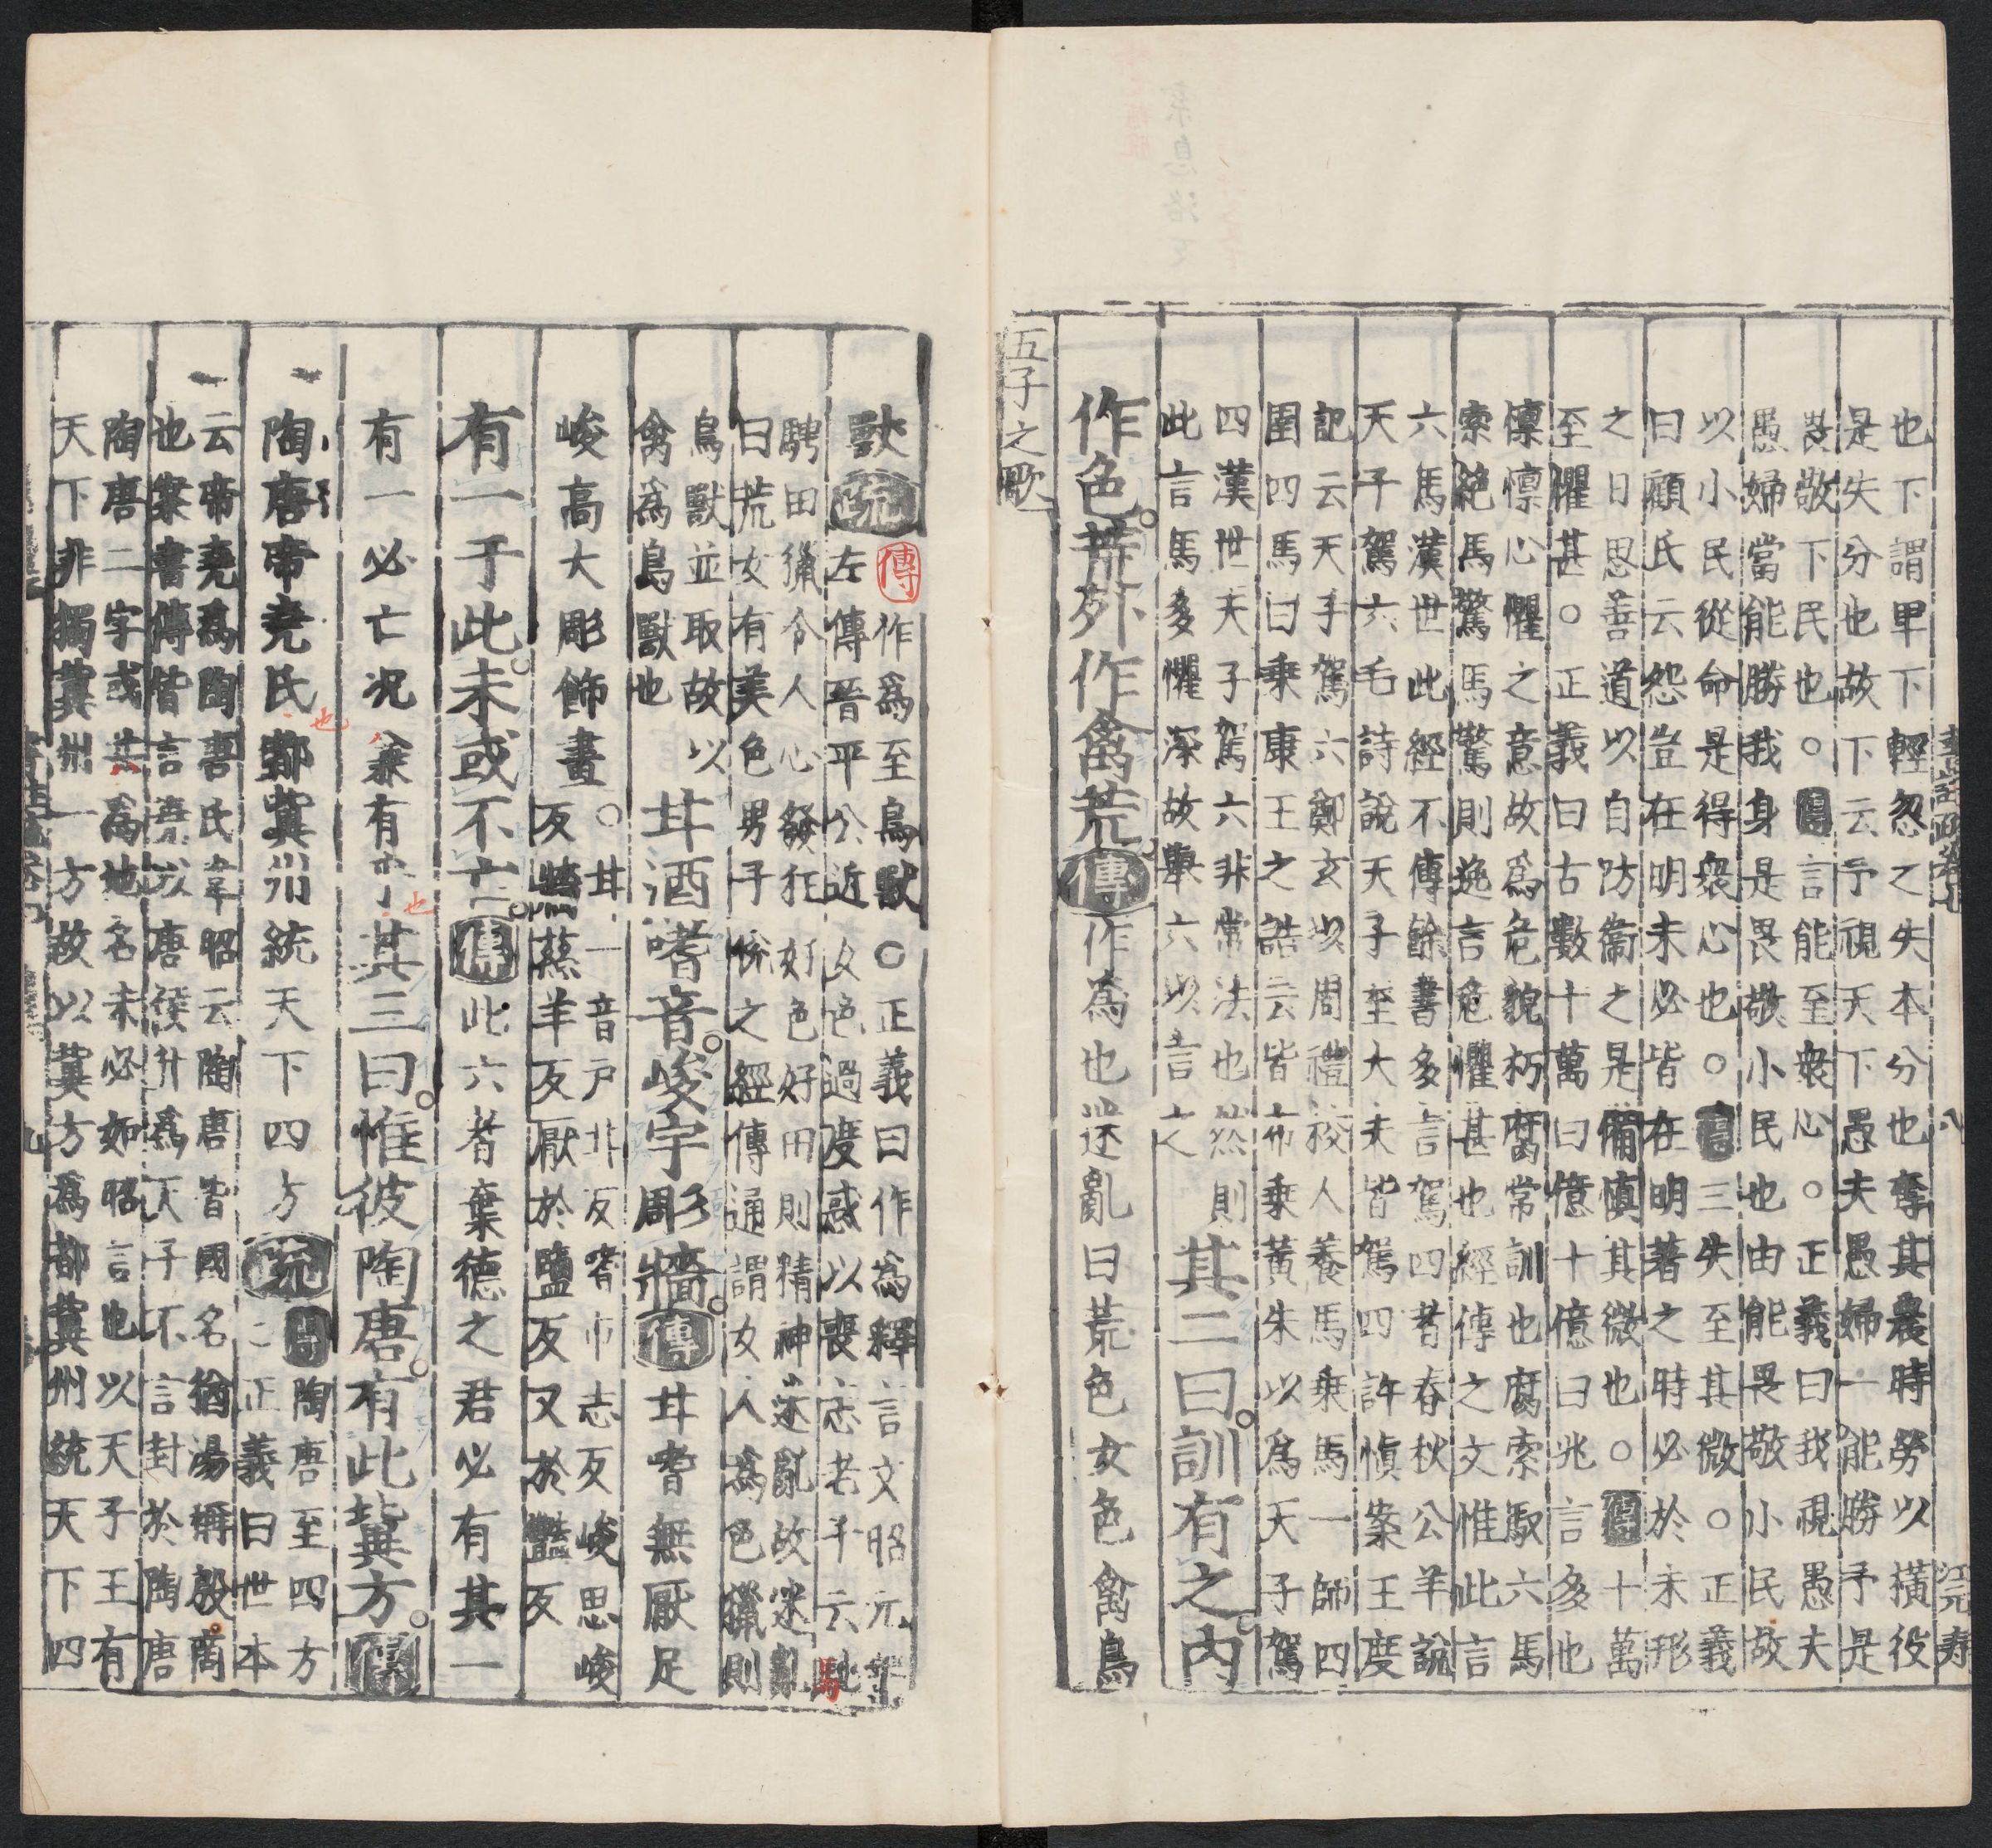 也下謂卑下輕忽之失本分也奪其農時勞以橫役
是失分也故下云予視天下愚夫愚婦一能勝予是
畏敬下民也○傳言能至衆心○正義曰我視愚夫
愚婦當能勝我身是畏敬小民也由能畏敬小民故
以小民從命是得衆心也○傳三失至其微○正義
曰顧氏云怨豈在明未必皆在明著之時必於未形
之日思善道以自防衞之是備慎其微也○傳十萬
至懼甚○正義曰古數十萬曰億十億曰兆言多也
懍懍心懼之意故爲危貌朽腐常訓也腐索馭六馬
索絶馬驚馬驚則逸言危懼甚也經傳之文惟此言
六馬漢世此經不傳餘書多言駕四者春秋公羊說
天子駕六毛詩說天子至大夫皆駕四許慎案王度
記云天子駕六鄭玄以周禮校人養馬乘馬一師四
圉四馬曰乘康王之誥云皆布乘黃朱以爲天子駕
四漢世天子駕六非常法也然則
此言馬多懼深故舉六以言之
其二曰訓有之內
作色荒外作禽荒傳作爲也迷亂曰荒色女色禽鳥
五子之歌
八
江元寿
獸疏傳作爲至鳥獸○正義曰作爲釋言文昭元年
左傳晉平公近女色過度惑以喪志老子云馳
騁田獵令人心發狂好色好田則精神迷亂故迷亂
曰荒女有美色男子悅之經傳通謂女人爲色獵則
鳥獸並取故以
禽爲鳥獸也
甘酒嗜音峻宇彫牆傳甘嗜無厭足
峻高大彫飾畫
○甘一音戸甘反嗜市志反峻思峻
反牆慈羊反厭於鹽反又於豔反
有一于此未或不亡傳此六者棄德之君必有其一
有一必亡況兼有乎也其三曰惟彼陶唐有此冀方傳
陶唐帝堯氏也都冀州統天下四方疏傳陶唐至四方
正義曰世本
云帝堯爲陶唐氏韋昭云陶唐皆國名猶湯稱殷商
也案書傳皆言堯以唐侯升爲天子不言封於陶唐
陶唐二字或共爲地名未必如昭言也以天子王有
天下非獨冀州一方故以冀方爲都冀州統天下四
九